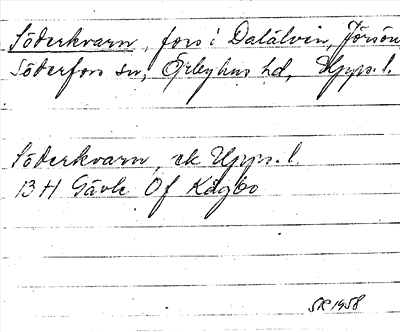 Söderkvarn, fors i Dalälven, Jörsön
Söderfors sn, Örbyhus hd, Upps. l.
Söderkvarn, ek Upps. l.
13 H Gävle Öf Kågbo
SR 1958